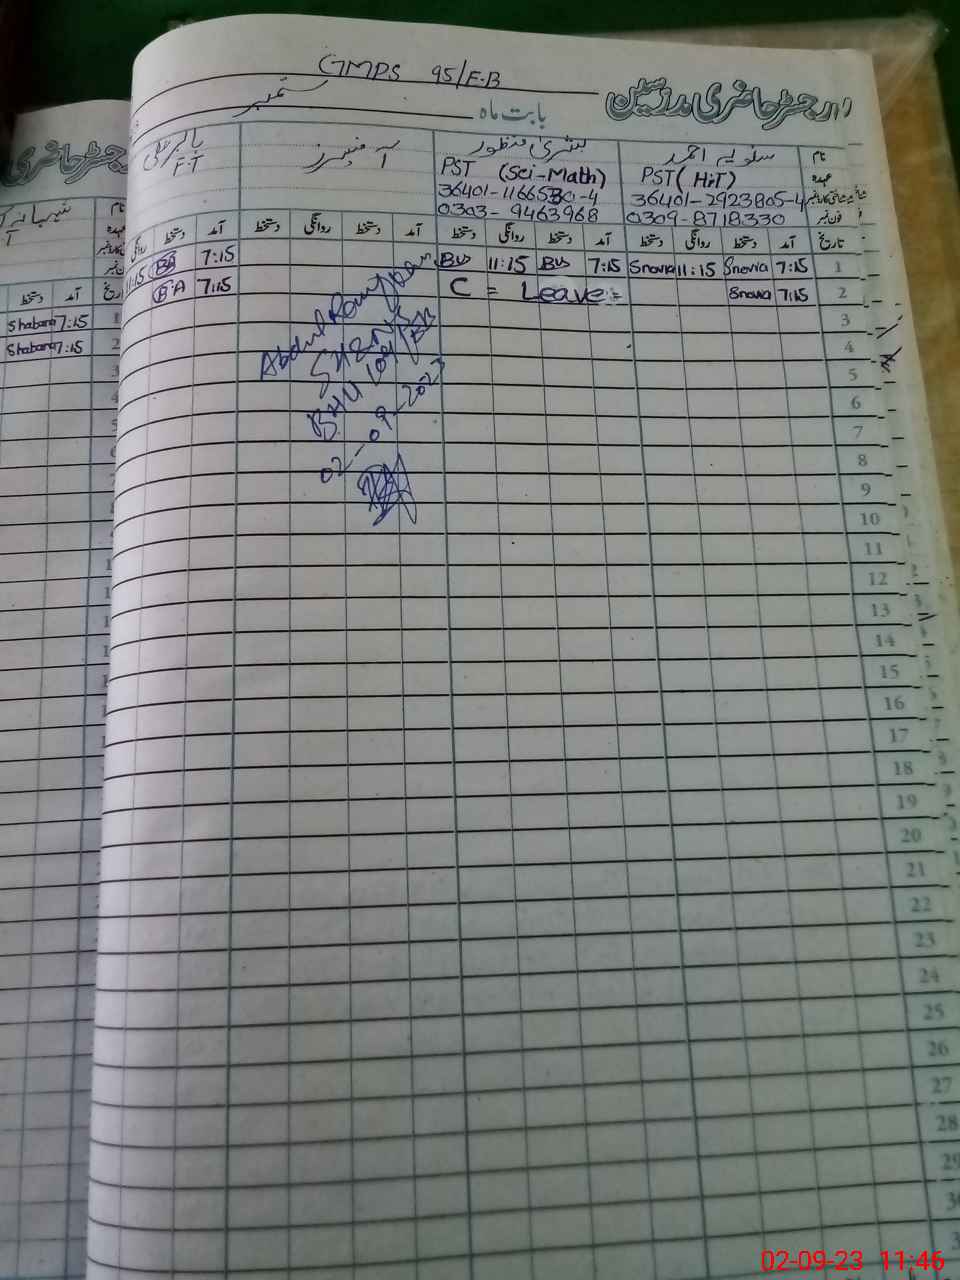 GMPS 95/E.B
رجسٹر حاضری مدرسین
بابت ماہ ستمبر
نام
عہدہ
PST (Hist)
36401-2923805-4
0309-8718330
بشریٰ منظور
PST (Sci-Math)
36401-1166530-4
0303-9463968
F.T
تاریخ آمد دستخط روانگی دستخط آمد دستخط روانگی دستخط آمد دستخط روانگی دستخط آمد دستخط روانگی
1 7:15 Snovia 11:15 Snovia 7:15 BUS 11:15 BUS 7:15 BA 11:15
2 7:15 Snovia C = Leave = 7:15 B.A
3
4
5
6
7
8
9
10
11
12
13
14
15
16
17
18
19
20
21
22
23
24
25
26
27
28
29
BHU 109/EB
02-09-2023
نام
عہدہ
تاریخ آمد دستخط
1 7:15 Shabana
2 7:15 Shabana
02-09-23 11:46